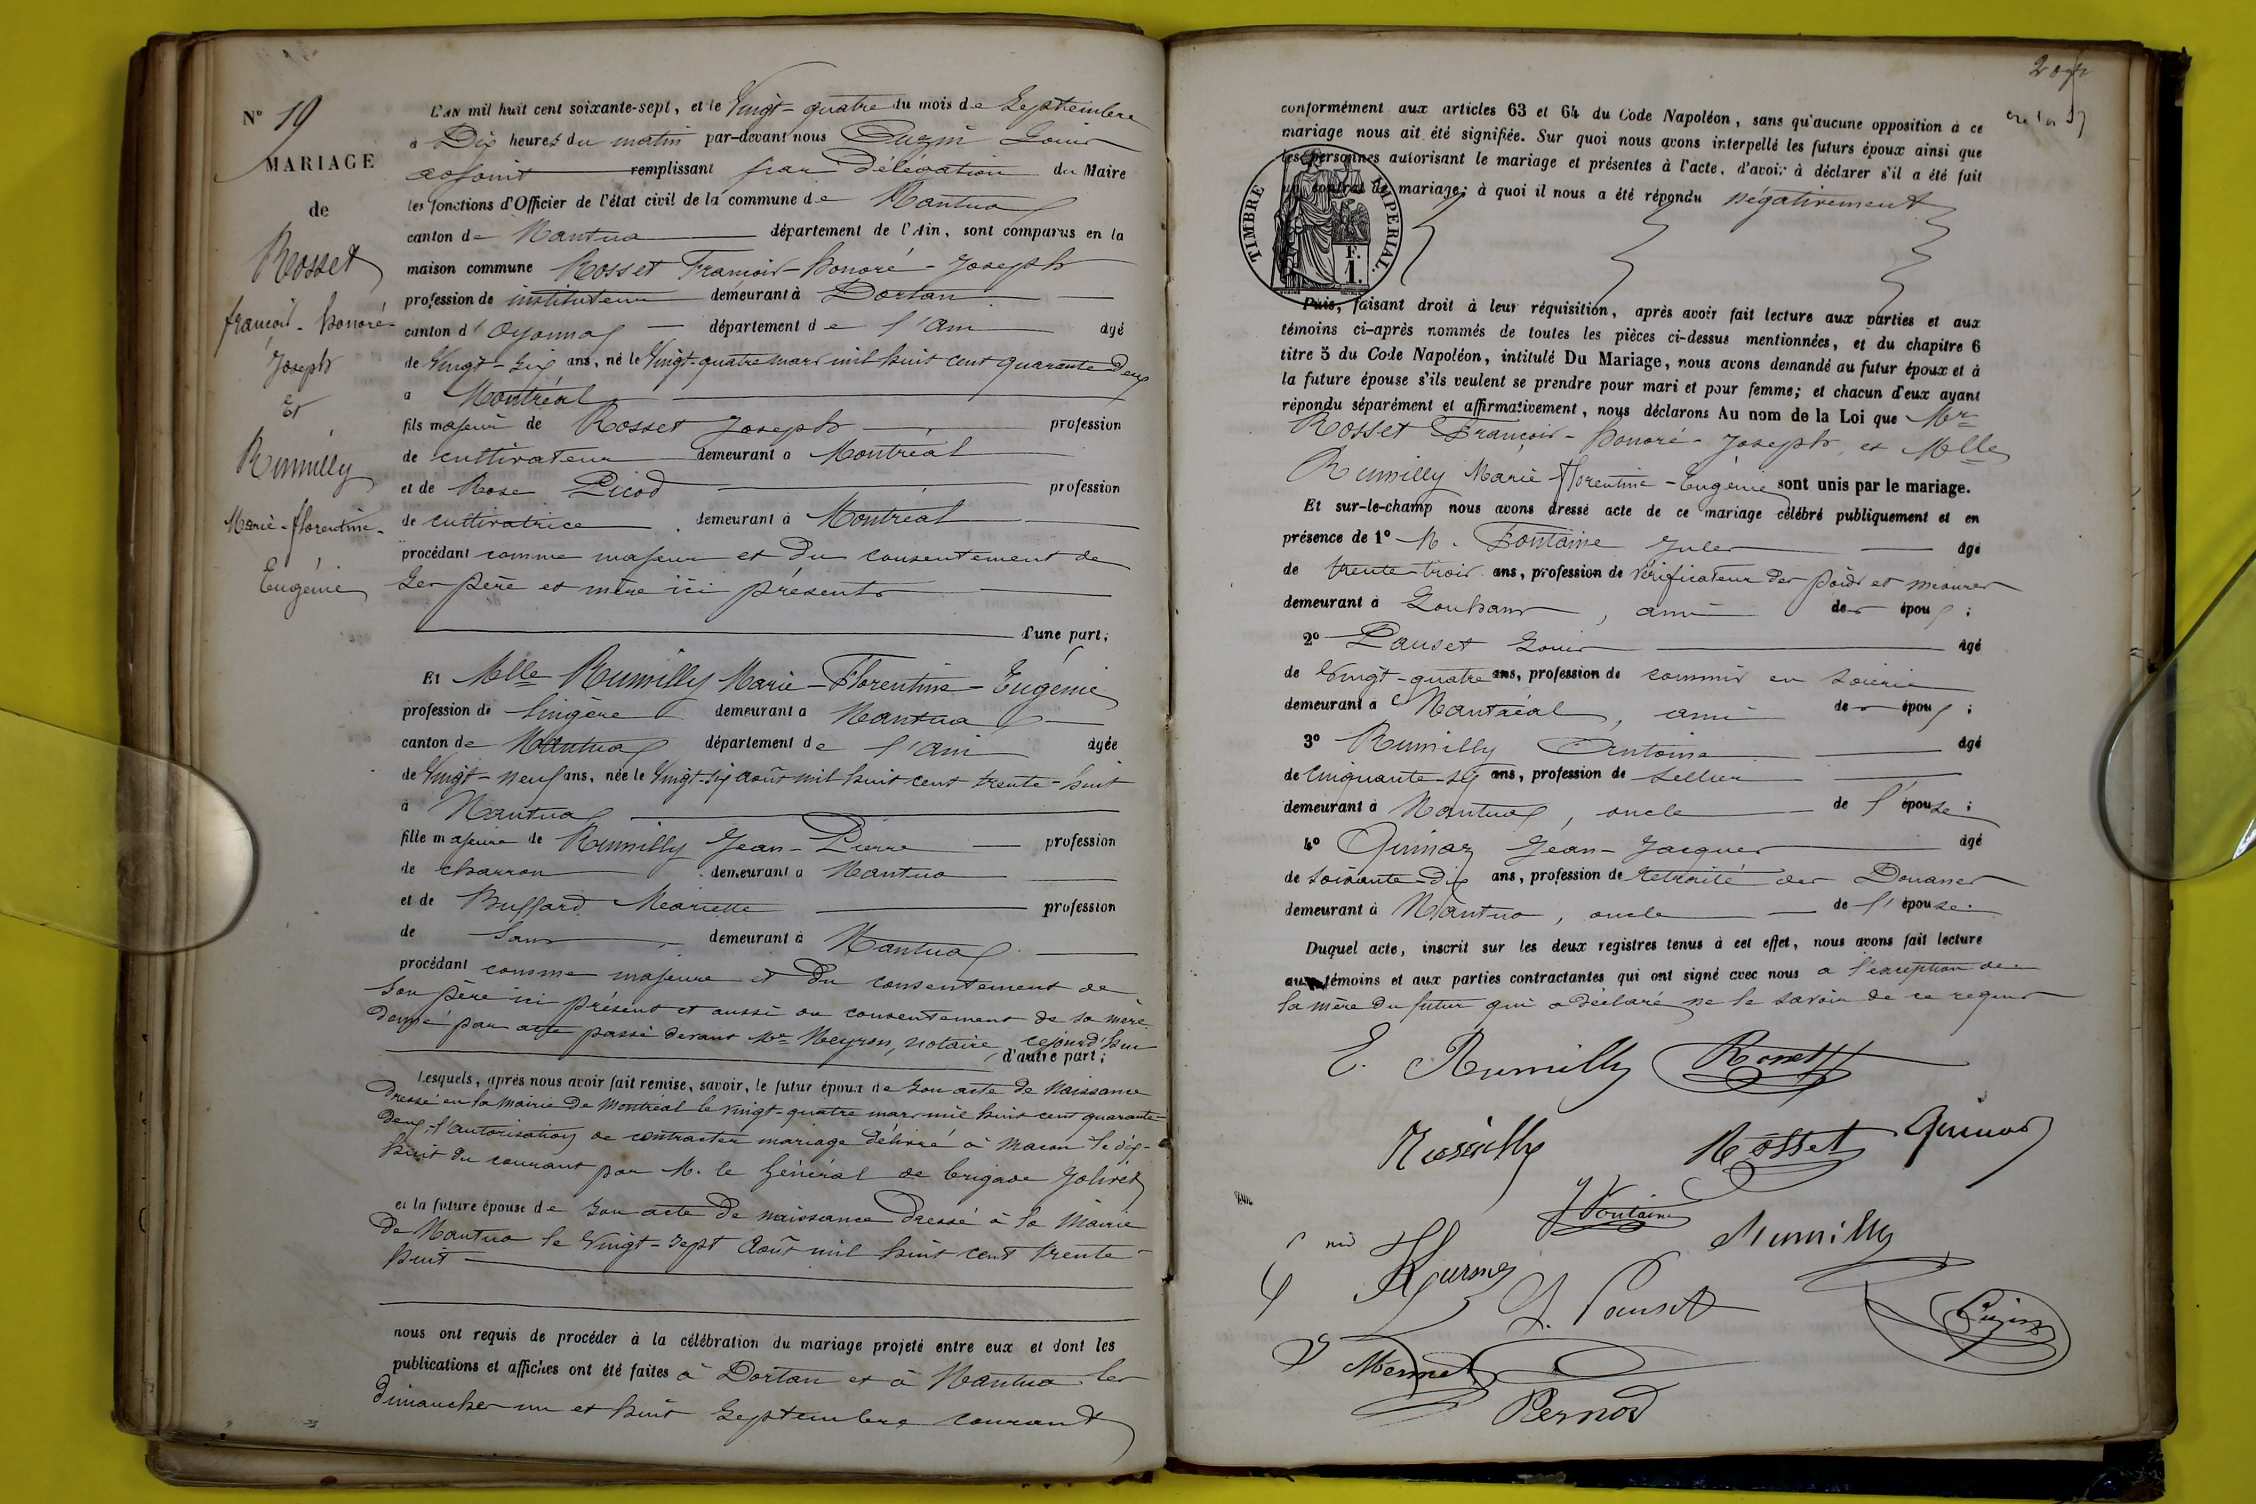 N° 19
MARIAGE
de
Rosset
françois - honoré -
Joseph
Et
Rumilly
Marie - florentine -
Eugénie
L'AN mil huit cent soixante-sept, et le Vingt-quatre du mois de Septembre
à Dix heures du matin par-devant nous Cuzin Louis
adjoint remplissant par Délégation du Maire
les fonctions d'Officier de l'état civil de la commune de Nantua
canton de Nantua département de l'Ain, sont comparus en la
maison commune Rosset François - honoré - Joseph
profession de instituteur demeurant à Dortan
canton d'Oyonnax département de l'ain âgé
de Vingt-six ans, né le Vingt-quatre mars mil huit cent quarante deux
à Montréal
fils majeur de Rosset Joseph profession
de cultivateur demeurant à Montréal
et de Rose Picod profession
de cultivatrice demeurant à Montréal
procédant comme majeur et du consentement de
ses père et mère ici présents
d'une part;
Et Melle Rumilly Marie - Florentine - Eugénie
profession de lingère demeurant à Nantua
canton de Nantua département de l'ain âgée
de Vingt-neuf ans, née le Vingt-six août mil huit cent trente-huit
à Nantua
fille majeure de Rumilly Jean-Pierre profession
de charron demeurant à Nantua
et de Buffard Mariette profession
de sans demeurant à Nantua
procédant comme majeure et du consentement de
son père ici présent et aussi du consentement de sa mère
donné par acte passé devant Me Neyron, notaire, cejourd'hui
d'autre part;
Lesquels, après nous avoir fait remise, savoir, le futur époux de son acte de Naissance
dressé en la Mairie de Montréal le vingt-quatre mars mil huit cent quarante-
deux, l'autorisation de contracter mariage délivrée à Macon le dix-
huit du courant par M. le Général de brigade Jolivet
et la future épouse de son acte de naissance dressé à la Mairie
de Nantua le Vingt-sept Août mil huit cent trente-
huit
nous ont requis de procéder à la célébration du mariage projeté entre eux et dont les
publications et affiches ont été faites à Dortan et à Nantua les
dimanches un et huit Septembre courant
conformément aux articles 63 et 64 du Code Napoléon, sans qu'aucune opposition à ce
mariage nous ait été signifiée. Sur quoi nous avons interpellé les futurs époux ainsi que
les personnes autorisant le mariage et présentes à l'acte, d'avoir à déclarer s'il a été fait
un contrat de mariage; à quoi il nous a été répondu négativement
TIMBRE IMPERIAL.
F.
1.
Puis, faisant droit à leur réquisition, après avoir fait lecture aux parties et aux
témoins ci-après nommés de toutes les pièces ci-dessus mentionnées, et du chapitre 6
titre 5 du Code Napoléon, intitulé Du Mariage, nous avons demandé au futur époux et à
la future épouse s'ils veulent se prendre pour mari et pour femme; et chacun d'eux ayant
répondu séparément et affirmativement, nous déclarons Au nom de la Loi que Mr
Rosset François - honoré - Joseph, et Melle
Rumilly Marie florentine - Eugénie sont unis par le mariage.
Et sur-le-champ nous avons dressé acte de ce mariage célébré publiquement et en
présence de 1° M. Fontaine Jules âgé
de trente-trois ans, profession de vérificateur des poids et mesures
demeurant à Louhans, ami des époux;
2° Pauset Louis âgé
de Vingt-quatre ans, profession de commis en soierie
demeurant à Montréal, ami des époux;
3° Rumilly Antoine âgé
de Cinquante-six ans, profession de sellier
demeurant à Nantua, oncle de l'épouse;
4° Guinaz Jean-Jacques âgé
de soixante-dix ans, profession de retraité des Douanes
demeurant à Nantua, oncle de l'épouse.
Duquel acte, inscrit sur les deux registres tenus à cet effet, nous avons fait lecture
aux témoins et aux parties contractantes qui ont signé avec nous à l'exception de
la mère du futur qui a déclaré ne le savoir de ce requise
E. Rumilly Rosset
Rumilly Rosset Guinaz
J Fontaine Rumilly
L. Pauset Cuzin
Mermet
Pernod